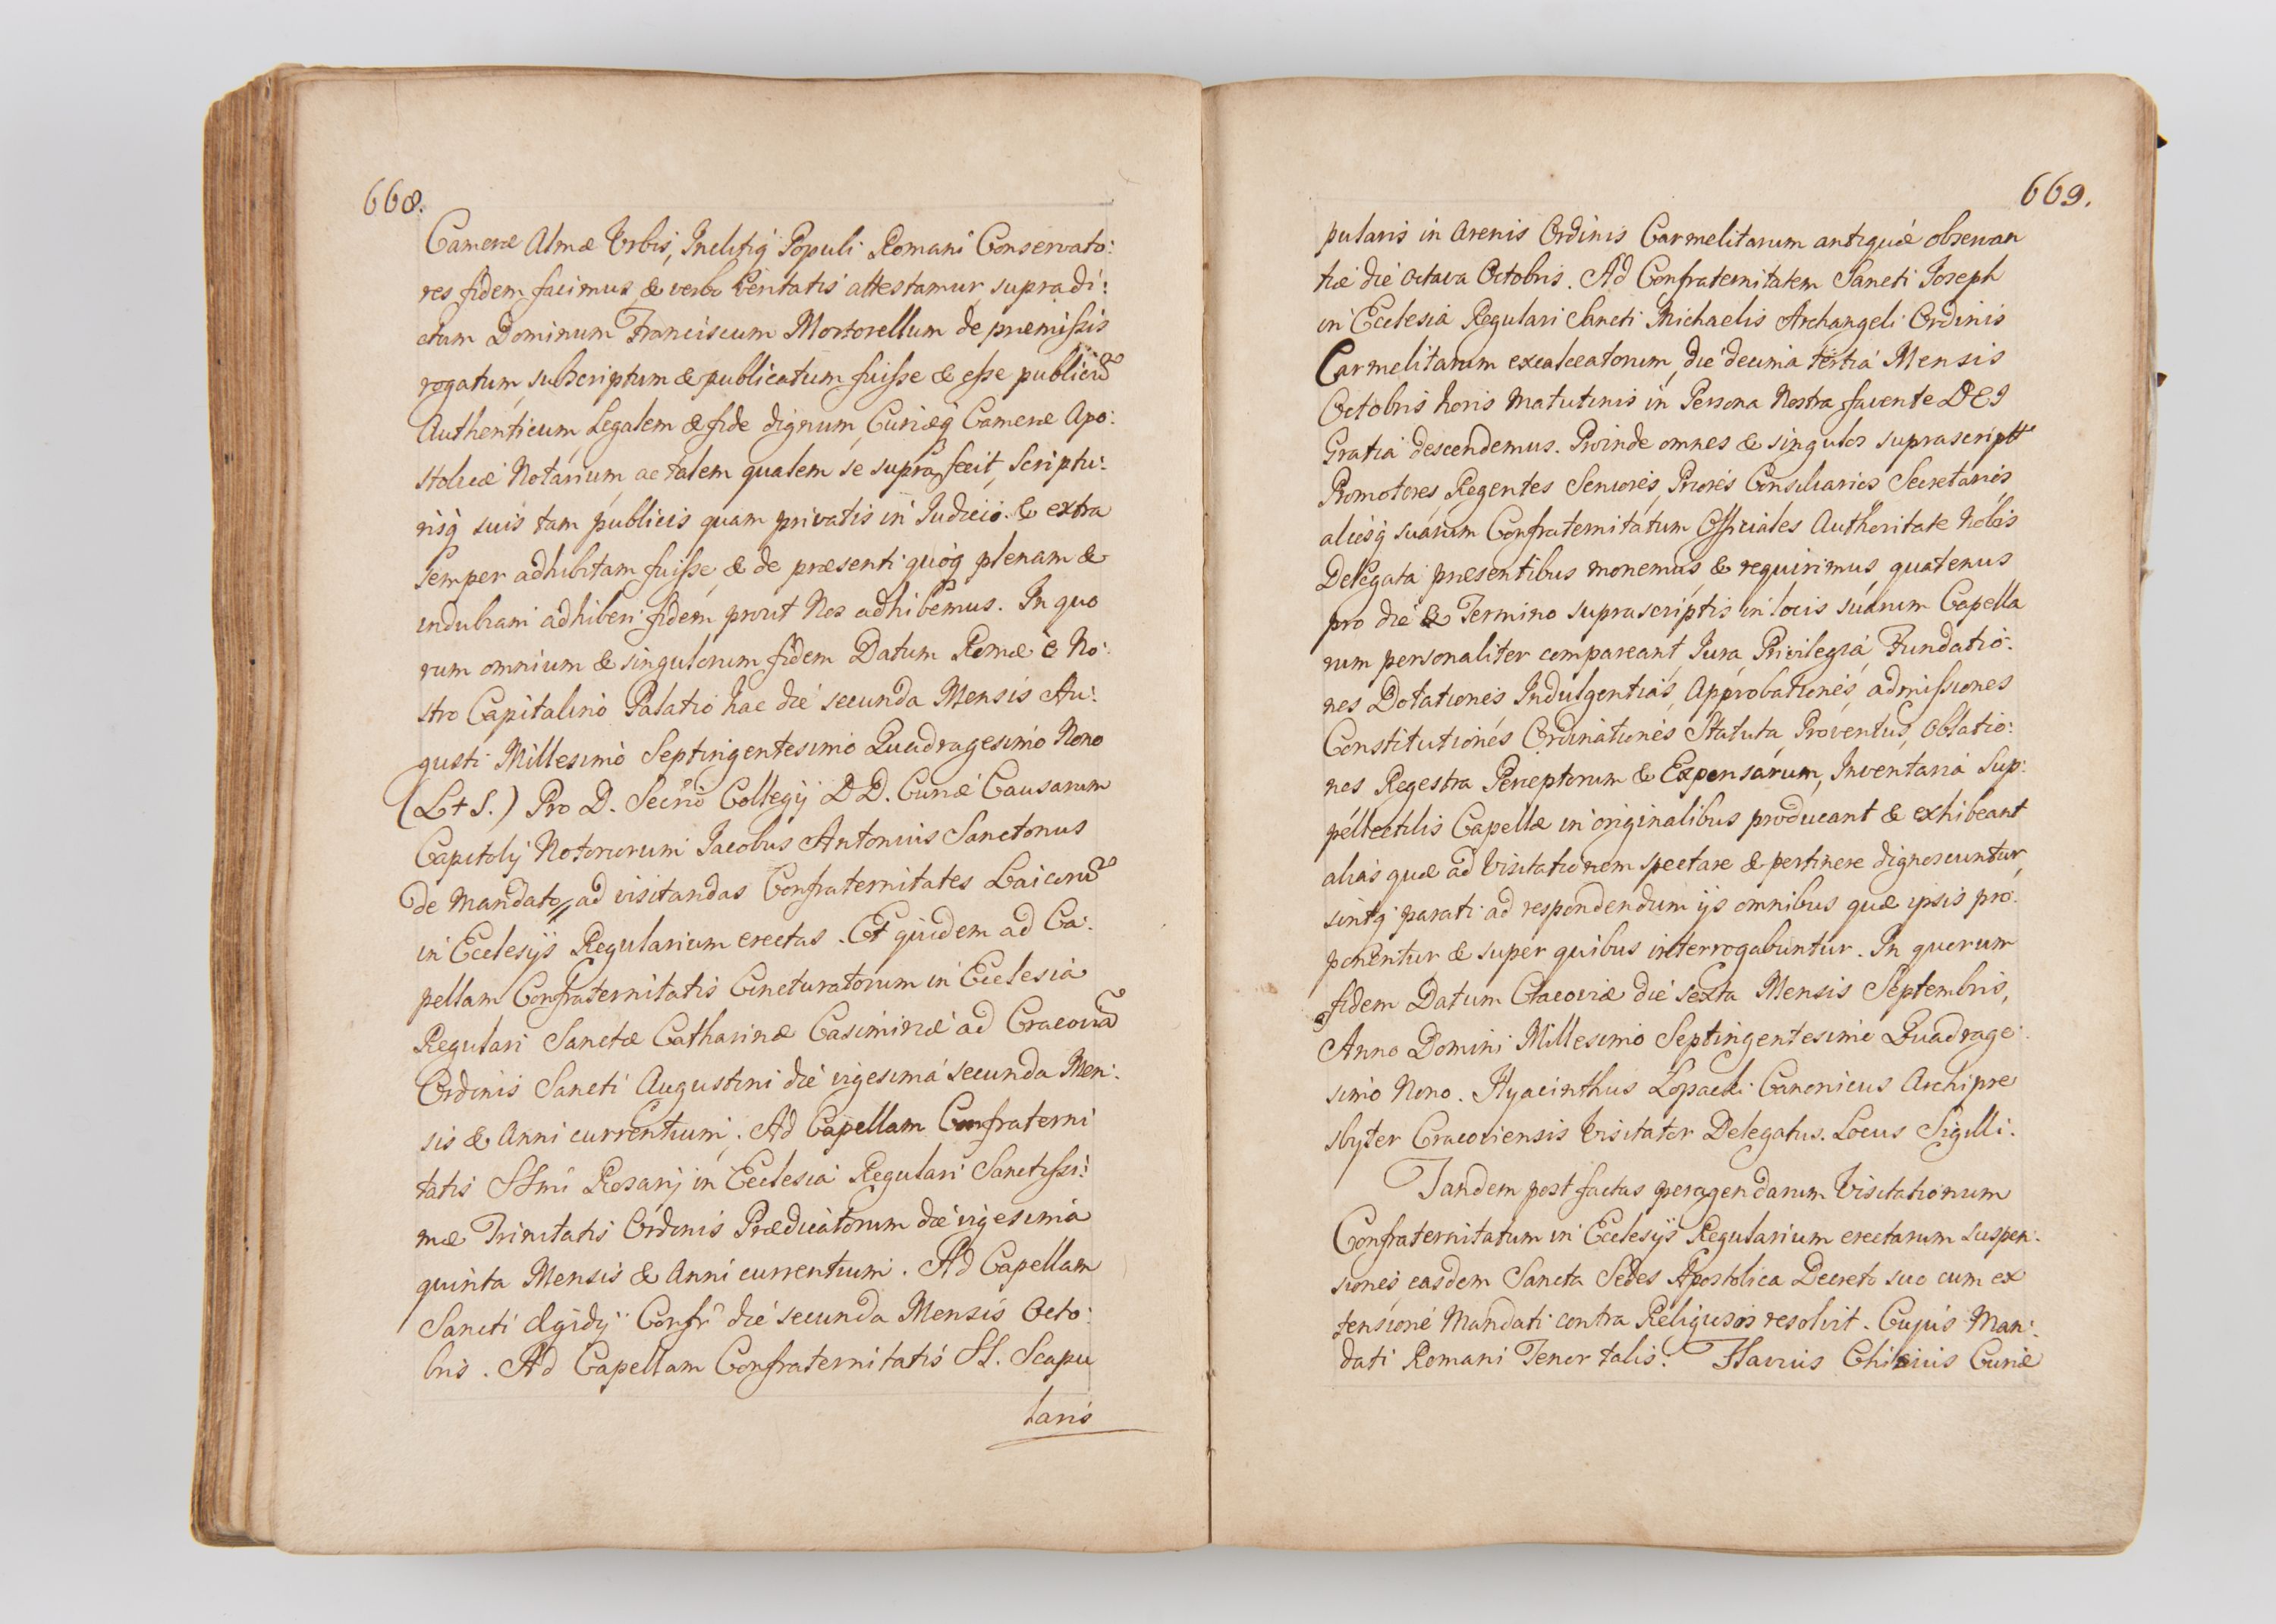 668.
Cameræ Almæ Urbis, Inclitiq̃ Populi Romani Conservato:
res fidem facimus & verbo Veritatis attestamur, supradi:
ctum Dominum Franciscum Mortorellum de præmissis
rogatum, subscriptum & publicatum fuisse & esse publicũ
Authenticum Legalem & fide dignum, Curiæq̃ Cameræ Apo:
stolicæ Notarium, ac talem qualem se supra fecit, Scriptu:
risq̃ suis tam publicis quam privatis in Judicio & extra
semper adhibitam fuisse, & de præsenti quoq̃ plenam &
indubiam adhiberi fidem, prout Nos adhibemus. In quo
rum omnium & singulorum fidem Datum Romæ è No:
stro Capitalino Palatio hac die secunda Mensis Au:
gusti Millesimo Septingentesimo Quadragesimo Nono
(L+S.) Pro D. Secrio Collegij DD. Curiæ Causarum
Capitolij Notoriorum Jacobus Antonius Sanctonus
de Mandato,, ad visitandas Confraternitates Laicorũ
in Ecclesijs Regularium erectas. Et quidem ad Ca:
pellam Confraternitatis Cincturatorum in Ecclesia
Regulari Sanctæ Catharinæ Casimiriæ ad Cracoviã
Ordinis Sancti Augustini die vigesima secunda Men:
sis & Anni currentium. Ad Capellam Confraterni
tatis SSmi Rosarij in Ecclesia Regulari Sanctissi:
mæ Trinitatis Ordinis Prædicatorum die vigesima
quinta Mensis & Anni currentium. Ad Capellam
Sancti Ægidij Confr̃ die secunda Mensis Octo:
bris. Ad Capellam Confraternitatis SS. Scapu
laris
669.
pularis in Arenis Ordinis Carmelitarum antiquæ observan
tiæ die octava Octobris. Ad Confraternitatem Sancti Joseph
in Ecclesia Regulari Sancti Michaelis Archangeli Ordinis
Carmelitarum excalceatorum, die decima tertia Mensis
Octobris horis Matutinis in Persona Nostra favente DEI
Gratia descendemus. Proinde omnes & singulos suprascriptt
Promotores Regentes Seniores, Priores Consiliarios Secretarios
aliosq̃ suarum Confraternitatum Officiales Authoritate Nobis
Delegata præsentibus monemus & requirimus, quatenus
pro die & Termino suprascriptis in locis suarum Capella
rum personaliter compareant Jura, Privilegia, Fundatio:
nes Dotationes Indulgentias, Approbationes, admissiones
Constitutiones Ordinationes Statuta, Proventus, Oblatio:
nes Regestra Perceptorum & Expensarum, Inventaria Sup:
pellectilis Capellæ in originalibus producant & exhibeant
alias quæ ad Visitationem spectare & pertinere dignoscuntur,
sintq̃ parati ad respondendum ijs omnibus quæ ipsis pro:
ponentur & super quibus interrogabuntur. In quorum
fidem Datum Cracoviæ die sexta Mensis Septembris,
Anno Domini Millesimo Septingentesimo Quadrage:
simo Nono. Hyacinthus Łopacki Canonicus Archipre
sbyter Cracoviensis Visitator Delegatus. Locus Sigilli.
Tandem post factas peragendarum Visitationum
Confraternitatum in Ecclesijs Regularium erectarum suspen:
siones, easdem Sancta Sedes Apostolica Decreto suo cum ex
tensione Mandati contra Religiosos resolvit. Cujus Man:
dati Romani Tenor talis. Flavius Chisius Curiæ